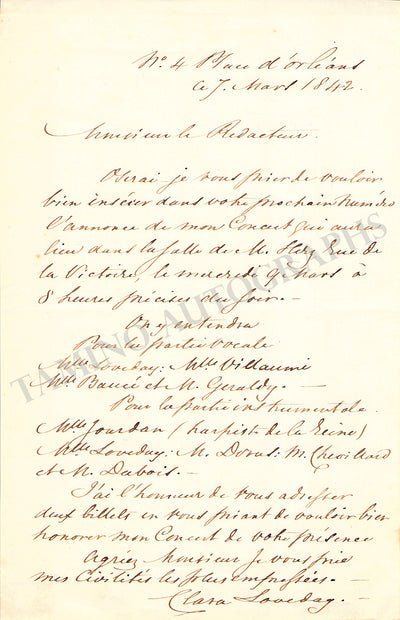 No. 4 Place d'Orléans
ce 7. Mars 1842.
Monsieur le Redacteur.
Oserai-je vous prier de vouloir
bien insérer dans votre prochain Numéro
l'annonce de mon Concert qui aura
lieu dans la Salle de M. Herz Rue de
la Victoire, le mercredi 9 Mars à
8 heures précises du soir. -
On y entendra
Pour la partie vocale
Mlle Loveday: Mlle Villaumé
Mlle Baucé et M. Geraldy. -
Pour la partie instrumentale.
Mlle Jourdan (harpiste de la Reine)
Mlle Loveday: M. Dorus: M. Chevillard
et M. Dubois. -
J'ai l'honneur de vous adresser
deux billets en vous priant de vouloir bien
honorer mon Concert de votre présence
Agréez Monsieur je vous prie
mes Civilités les plus empressées. -
Clara Loveday. -
TAMINO AUTOGRAPHS